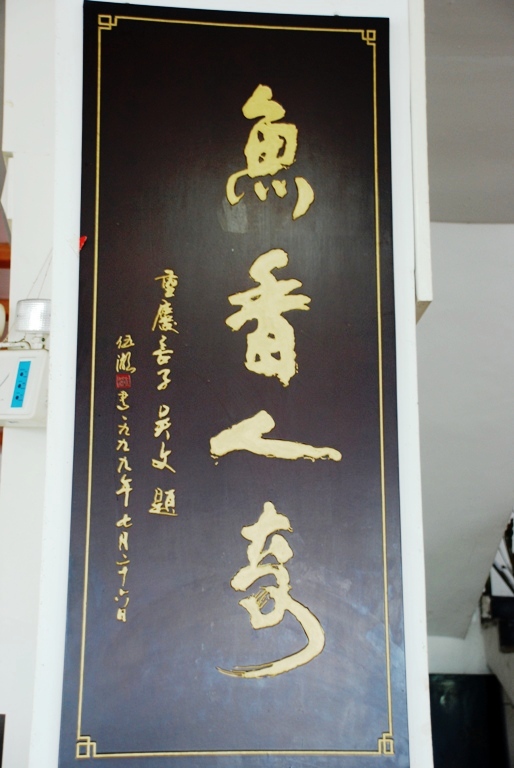 魚香人奇
重慶言子吳文題
伍瀨書一九九九年七月二十六日